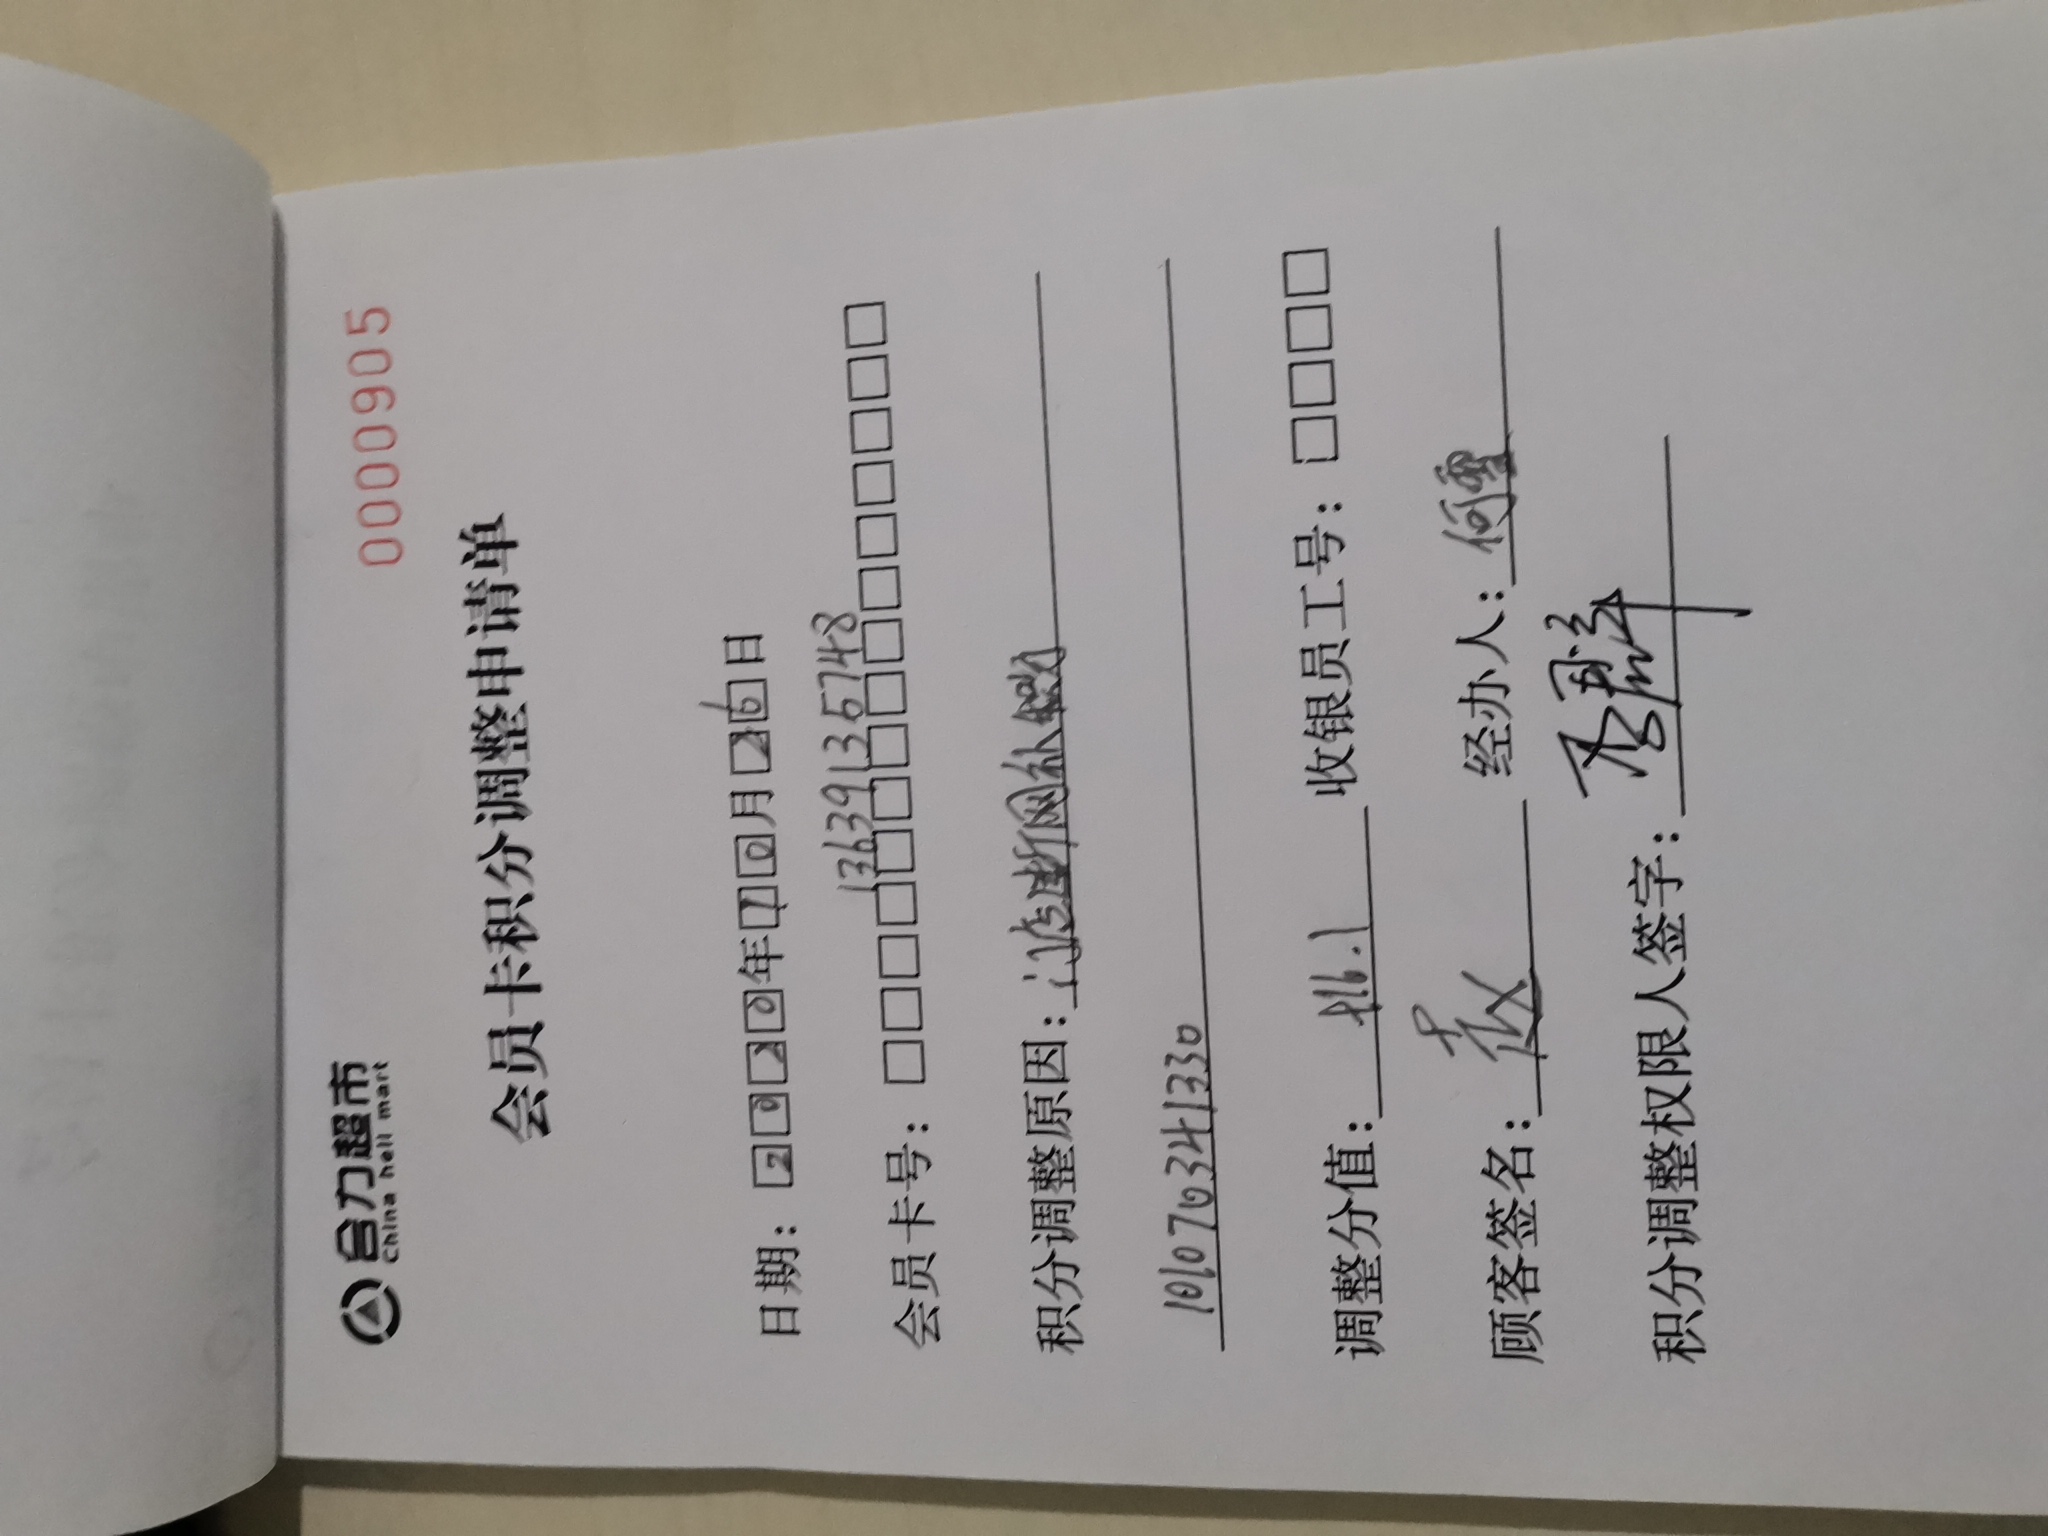 合力超市
China heli mart
0000905
会员卡积分调整申请单
日期：2020年10月26日
会员卡号：□□□□□□□□□□□□□□□ 13639135748
积分调整原因：门店断网补积分
101076341330
调整分值：816.1 收银员工号：□□□□
顾客签名：赵 经办人：何雪
积分调整权限人签字：